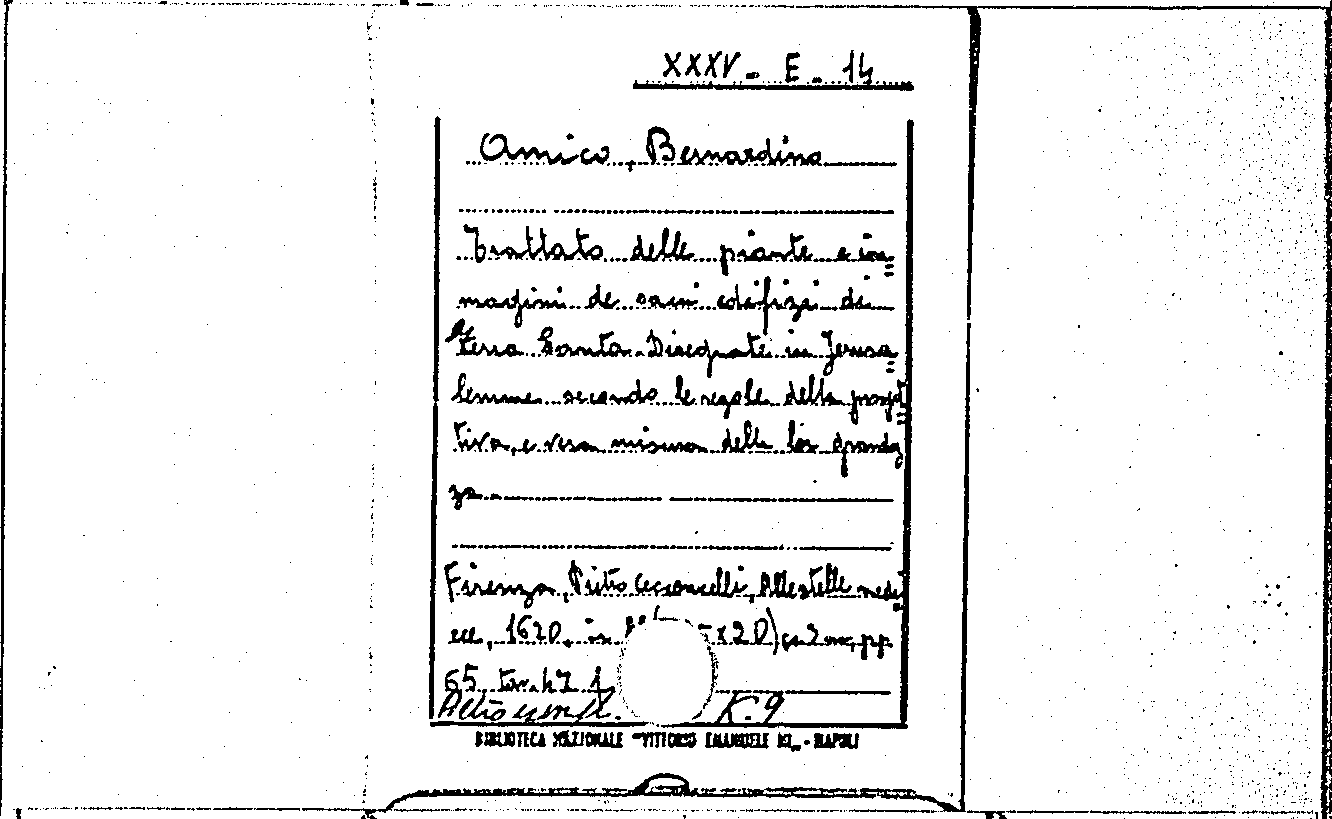 XXXV - E - 14
Amico, Bernardino
Trattato delle piante e im=
magini de sacri edifizi di
terra Santa. Disegnate in Jerusa=
lemme secondo le regole della prospet=
tiva, e vera misura delle lor grandez=
za.
Firenze, Pietro Cecconcelli, Alle stelle medi=
cee, 1620. in x20) cc 2 nn, pp.
65 tav. 47
Altro esempl. K.9
BIBLIOTECA NAZIONALE "VITTORIO EMANUELE III" - NAPOLI